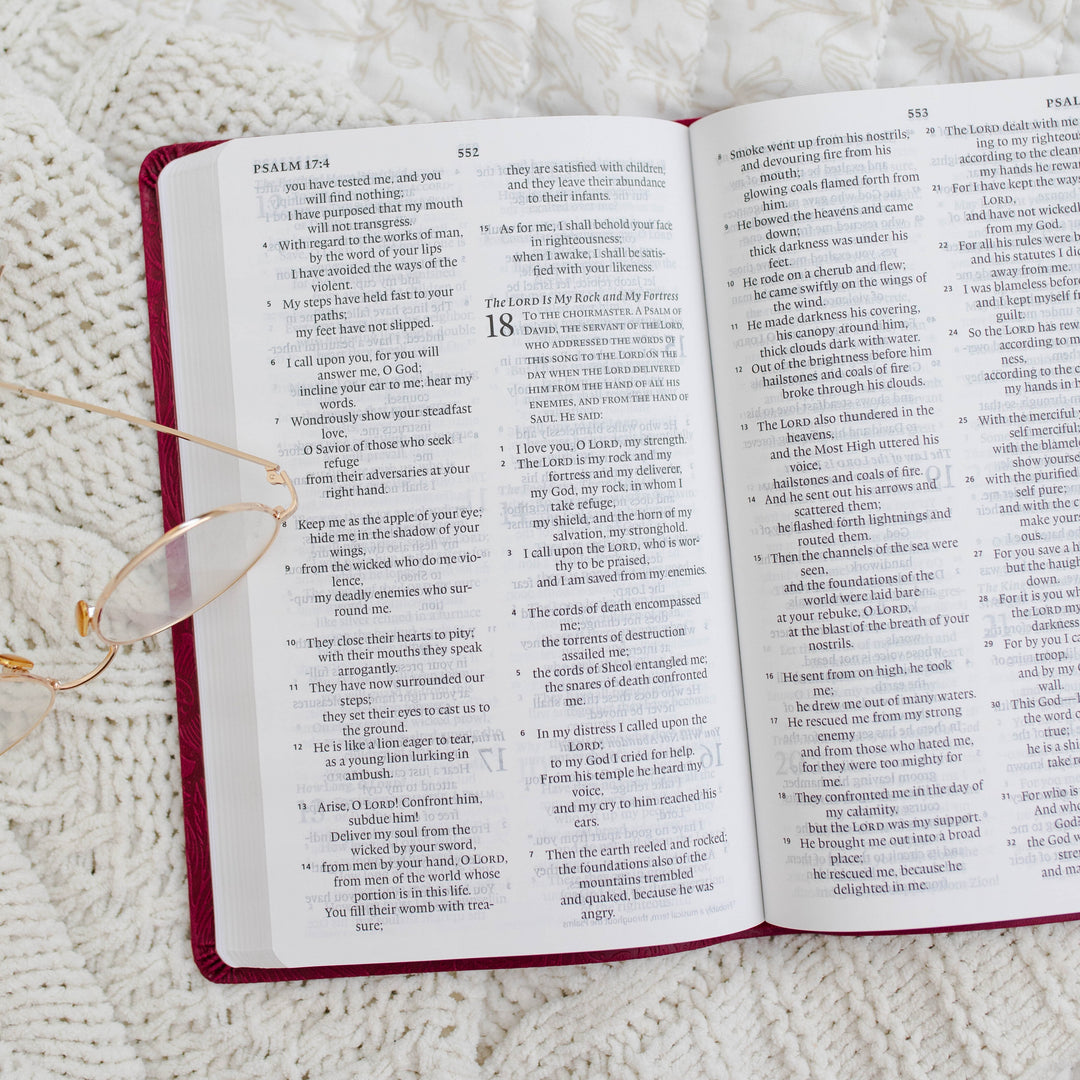 PSALM 17:4
552
you have tested me, and you
will find nothing;
I have purposed that my mouth
will not transgress.
4 With regard to the works of man,
by the word of your lips
I have avoided the ways of the
violent.
5 My steps have held fast to your
paths;
my feet have not slipped.
6 I call upon you, for you will
answer me, O God;
incline your ear to me; hear my
words.
7 Wondrously show your steadfast
love,
O Savior of those who seek
refuge
from their adversaries at your
right hand.
8 Keep me as the apple of your eye;
hide me in the shadow of your
wings,
9 from the wicked who do me vio-
lence,
my deadly enemies who sur-
round me.
10 They close their hearts to pity;
with their mouths they speak
arrogantly.
11 They have now surrounded our
steps;
they set their eyes to cast us to
the ground.
12 He is like a lion eager to tear,
as a young lion lurking in
ambush.
13 Arise, O LORD! Confront him,
subdue him!
Deliver my soul from the
wicked by your sword,
14 from men by your hand, O LORD,
from men of the world whose
portion is in this life.
You fill their womb with trea-
sure;
they are satisfied with children,
and they leave their abundance
to their infants.
15 As for me, I shall behold your face
in righteousness;
when I awake, I shall be satis-
fied with your likeness.
The LORD Is My Rock and My Fortress
18 TO THE CHOIRMASTER. A PSALM OF
DAVID, THE SERVANT OF THE LORD,
WHO ADDRESSED THE WORDS OF
THIS SONG TO THE LORD ON THE
DAY WHEN THE LORD DELIVERED
HIM FROM THE HAND OF ALL HIS
ENEMIES, AND FROM THE HAND OF
SAUL. HE SAID:
1 I love you, O LORD, my strength.
2 The LORD is my rock and my
fortress and my deliverer,
my God, my rock, in whom I
take refuge,
my shield, and the horn of my
salvation, my stronghold.
3 I call upon the LORD, who is wor-
thy to be praised,
and I am saved from my enemies.
4 The cords of death encompassed
me;
the torrents of destruction
assailed me;
5 the cords of Sheol entangled me;
the snares of death confronted
me.
6 In my distress I called upon the
LORD;
to my God I cried for help.
From his temple he heard my
voice,
and my cry to him reached his
ears.
7 Then the earth reeled and rocked;
the foundations also of the
mountains trembled
and quaked, because he was
angry.
553
PSAL
8 Smoke went up from his nostrils,
and devouring fire from his
mouth;
glowing coals flamed forth from
him.
9 He bowed the heavens and came
down;
thick darkness was under his
feet.
10 He rode on a cherub and flew;
he came swiftly on the wings of
the wind.
11 He made darkness his covering,
his canopy around him,
thick clouds dark with water.
12 Out of the brightness before him
hailstones and coals of fire
broke through his clouds.
13 The LORD also thundered in the
heavens,
and the Most High uttered his
voice,
hailstones and coals of fire.
14 And he sent out his arrows and
scattered them;
he flashed forth lightnings and
routed them.
15 Then the channels of the sea were
seen,
and the foundations of the
world were laid bare
at your rebuke, O LORD,
at the blast of the breath of your
nostrils.
16 He sent from on high, he took
me;
he drew me out of many waters.
17 He rescued me from my strong
enemy
and from those who hated me,
for they were too mighty for
me.
18 They confronted me in the day of
my calamity,
but the LORD was my support.
19 He brought me out into a broad
place;
he rescued me, because he
delighted in me.
20 The LORD dealt with me
ing to my righteou
according to the clean
my hands he rewar
21 For I have kept the ways
LORD,
and have not wickedl
from my God.
22 For all his rules were b
and his statutes I di
away from me.
23 I was blameless before
and I kept myself fr
guilt.
24 So the LORD has rew
according to m
ness,
according to the c
my hands in h
25 With the merciful
self merciful;
with the blamele
show yourse
26 with the purified
self pure;
and with the c
make yours
ous.
27 For you save a h
but the haugh
down.
28 For it is you wh
the LORD my
darkness
29 For by you I ca
troop,
and by my
wall.
30 This God—h
the word o
true;
he is a shi
take re
31 For who is
And who
God?
32 the God w
stre
and ma